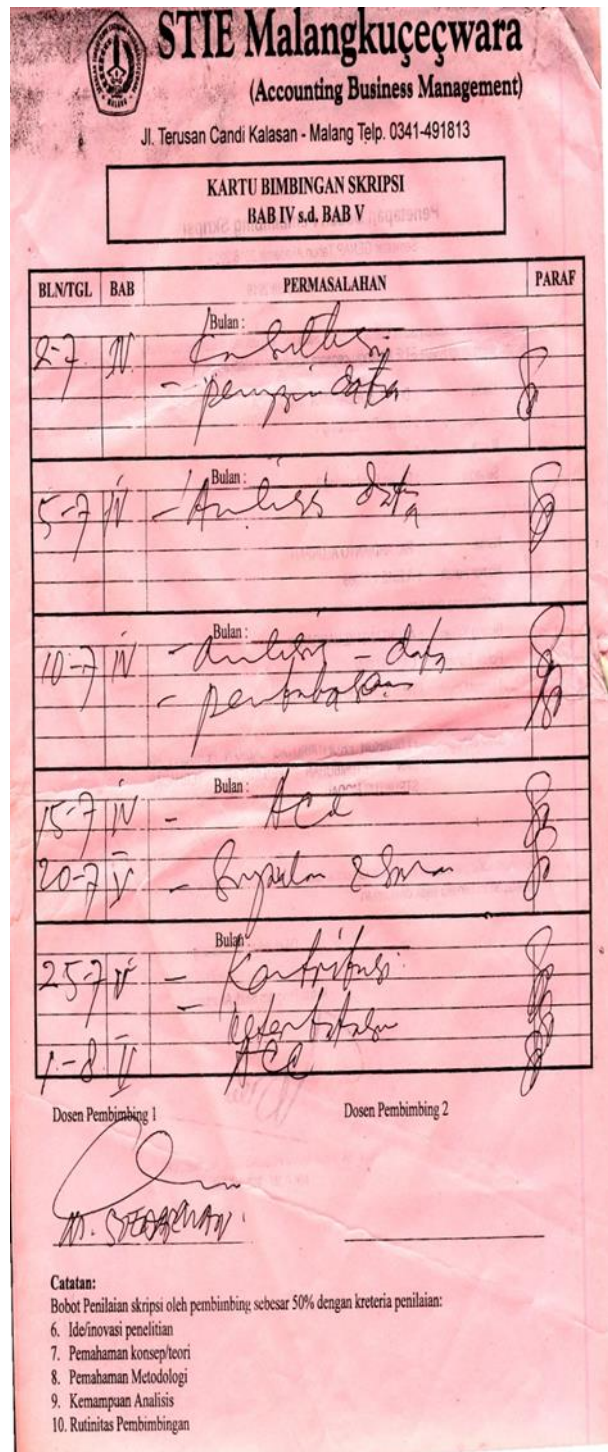 STIE Malangkuçeçwara
(Accounting Business Management)
Jl. Terusan Candi Kalasan - Malang Telp. 0341-491813
KARTU BIMBINGAN SKRIPSI
BAB IV s.d. BAB V
BLN/TGL BAB PERMASALAHAN PARAF
Bulan :
2-7 IV
- data
Bulan :
5-7 IV - Analisis data
Bulan :
10-7 IV - analisis - data
- pembahasan
Bulan :
15-7 IV - Acc
20-7 V - Simpulan & Saran
Bulan :
25-7 V - Kontribusi
- keterbatasan
1-8 V ACC
Dosen Pembimbing 1 Dosen Pembimbing 2
Catatan:
Bobot Penilaian skripsi oleh pembimbing sebesar 50% dengan kreteria penilaian:
6. Ide/inovasi penelitian
7. Pemahaman konsep/teori
8. Pemahaman Metodologi
9. Kemampuan Analisis
10. Rutinitas Pembimbingan